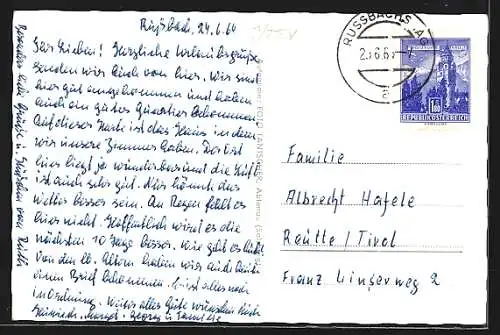 Rußbach, 24.6.64
Ihr Lieben! Herzliche Urlaubsgrüße
senden wir Euch von hier. Wir sind
hier gut angekommen und haben
auch ein gutes Quartier bekommen
Auf dieser Karte ist das Haus in dem
wir unsere Zimmer haben. Der Ort
hier liegt ja wunderbar und die Luft
ist auch sehr gut. Nur könnte das
Wetter besser sein. An Regen fehlt es
hier nicht. Hoffentlich wird es die
nächsten 10 Tage besser. Wie geht es Euch?
Von den Eltern haben wir auch
einen Brief bekommen. ist alles noch
in Ordnung. Weiter alles Gute wünschen Euch
Georg u. Familie
Grüße u.
RUSSBACH
REPUBLIK ÖSTERREICH
Familie
Albrecht Hafele
Reutte / Tirol
Franz Linserweg 2